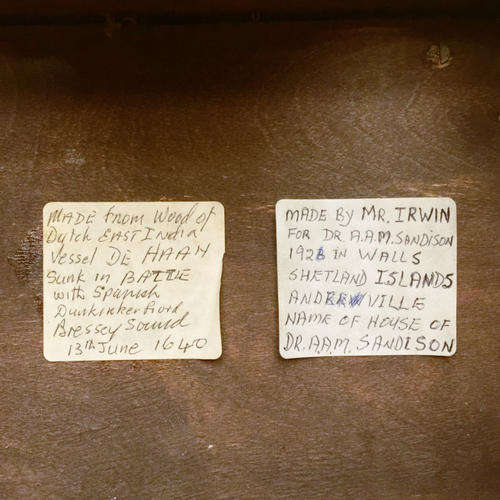 MADE from Wood of
Dutch EAST India
Vessel DE HAAN
Sunk in BATTLE
with Spanish
Dunkinker
Bressey Sound
13th June 1640
MADE BY MR. IRWIN
FOR DR A.A.M. SANDISON
1928 IN WALLS
SHETLAND ISLANDS
ANDREWVILLE
NAME OF HOUSE OF
DR. A.A.M. SANDISON